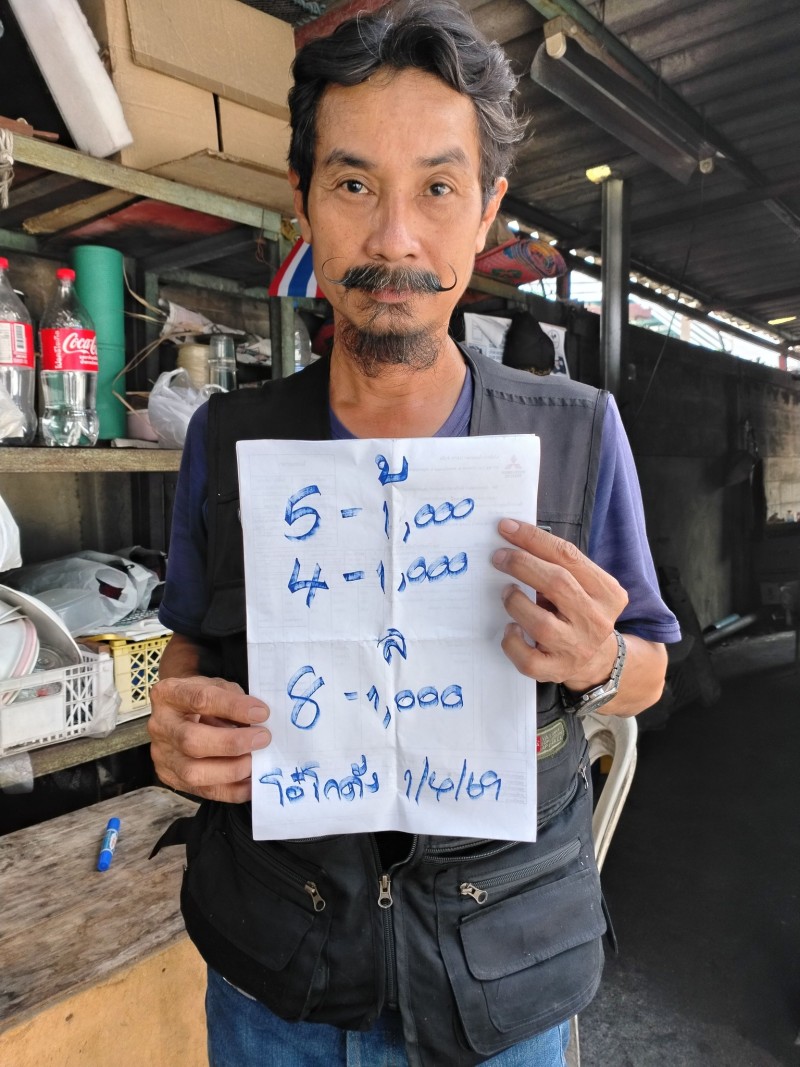 บ
5 - 1,000
4 - 1,000
ล
8 - 1,000
โอ๋โกดัง 1/4/69
Coca-Cola